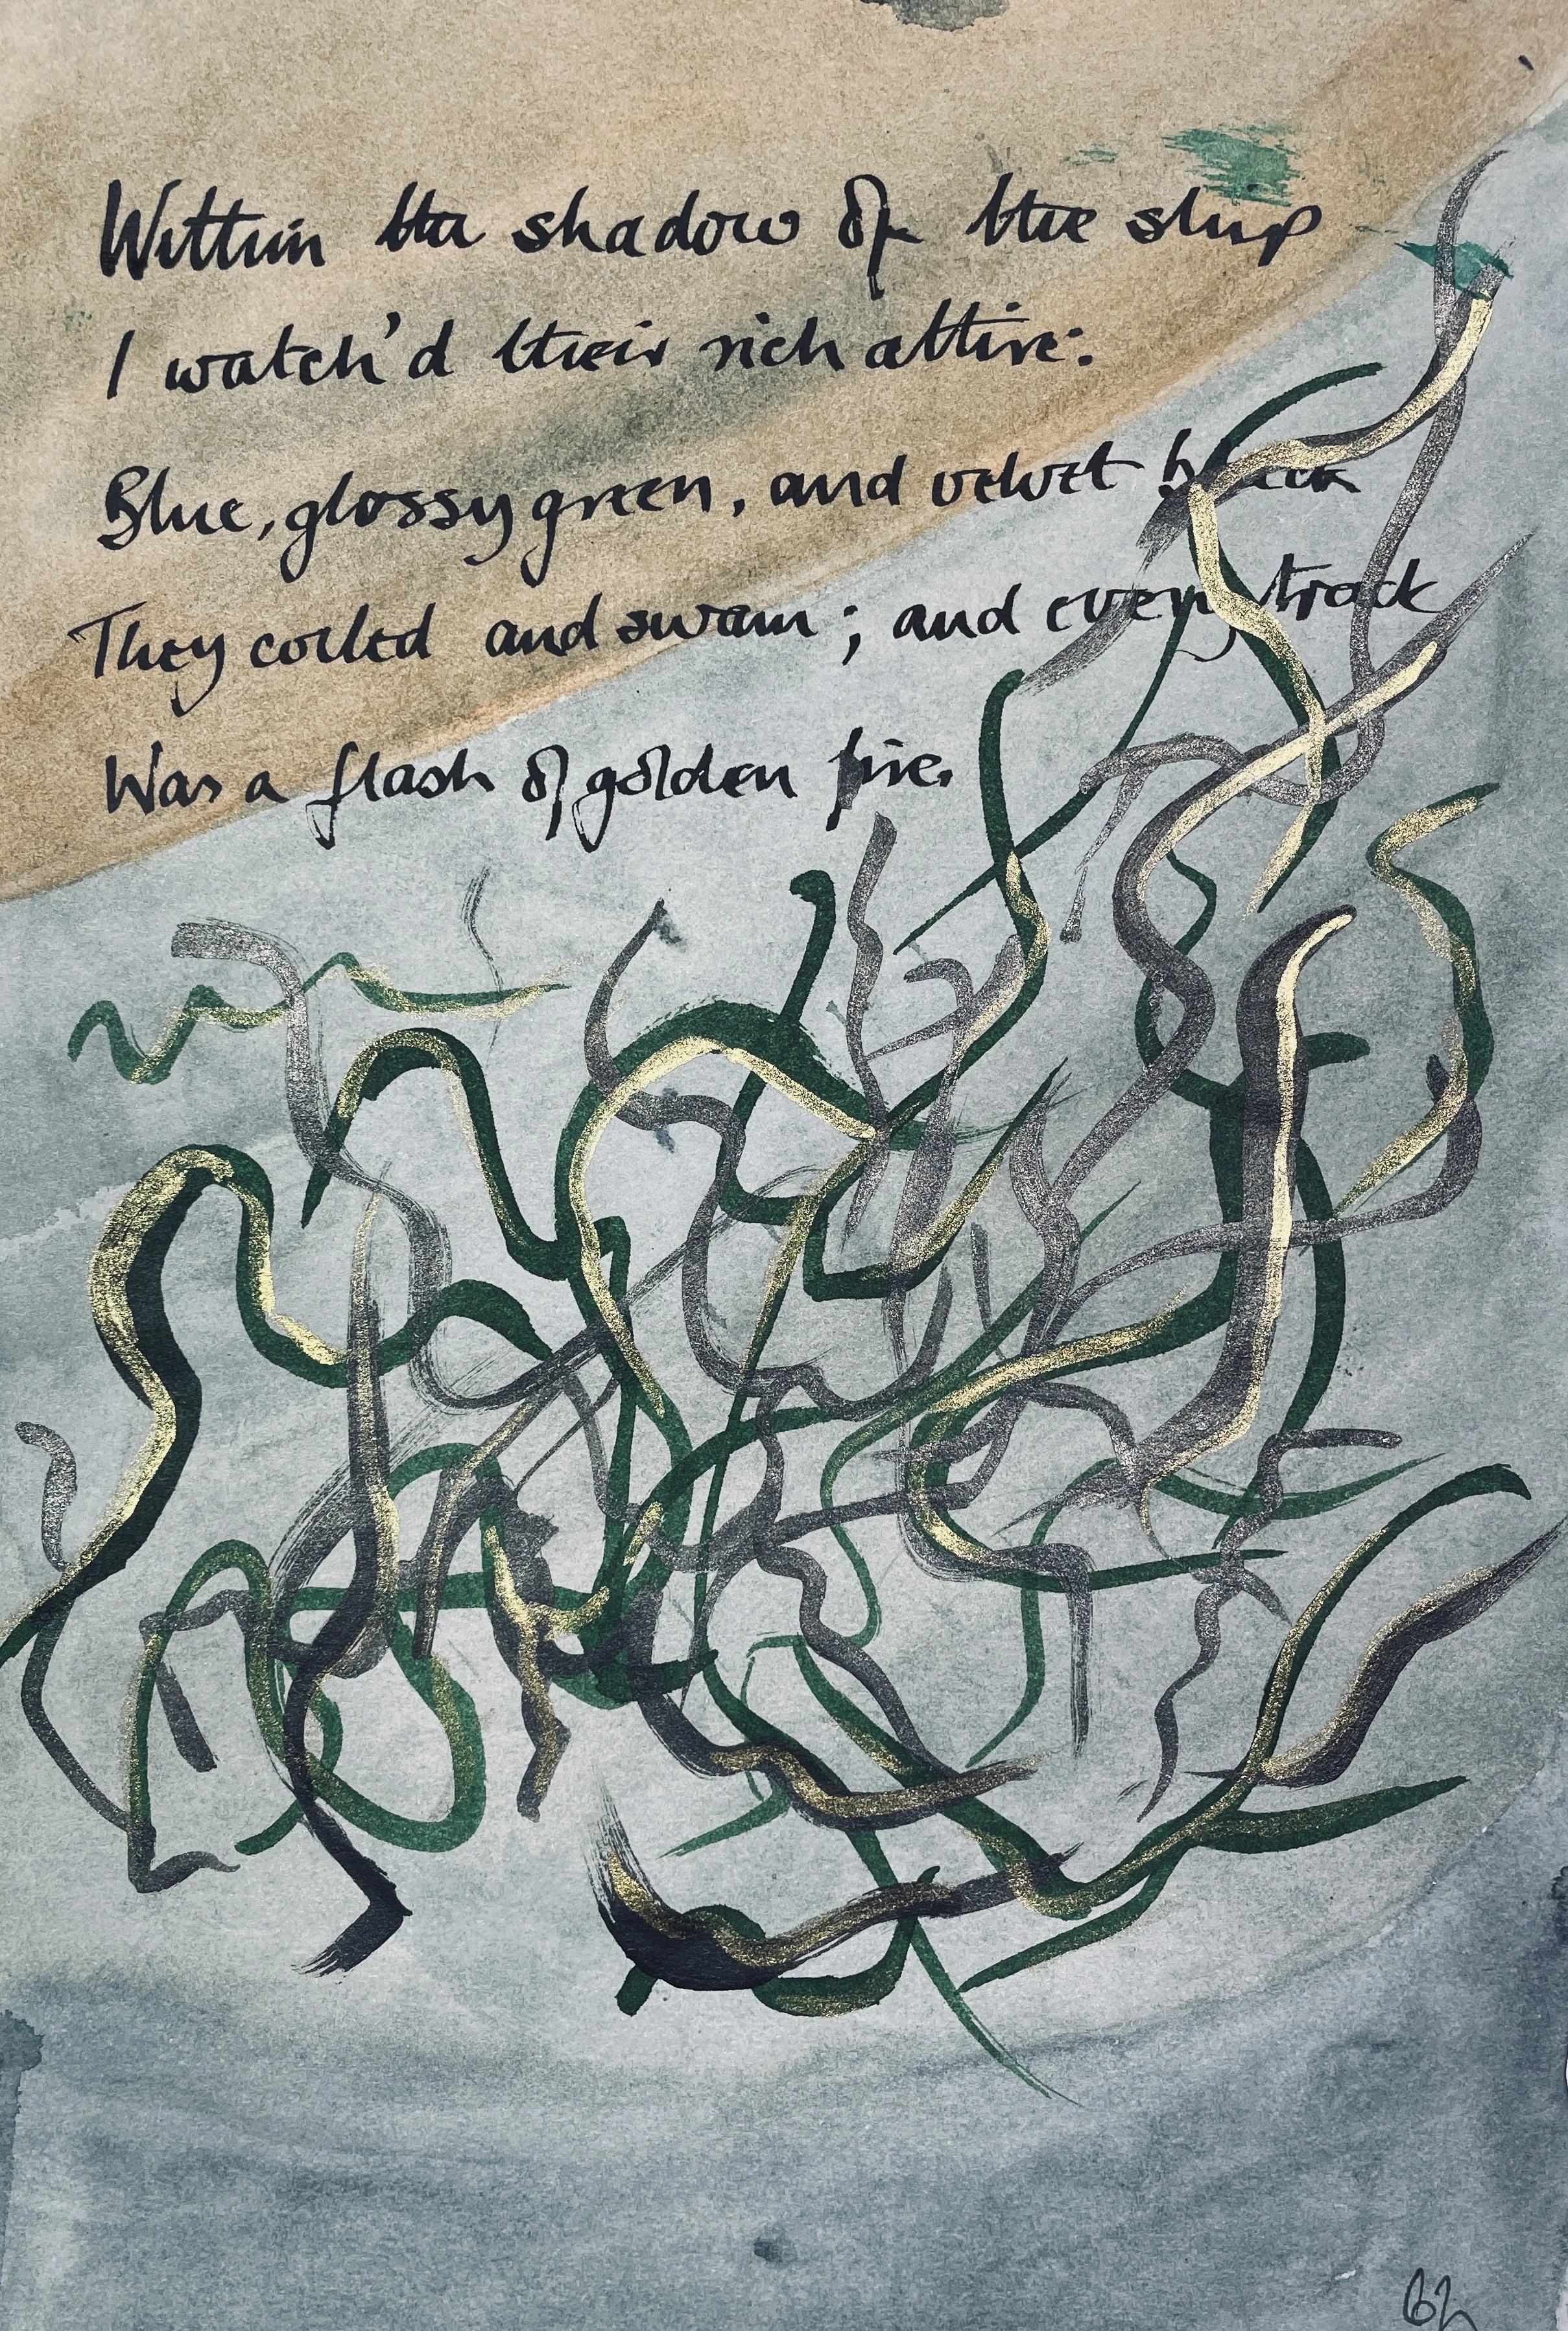 Within the shadow of the ship
I watch'd their rich attire:
Blue, glossy green, and velvet black
They coiled and swam; and every track
Was a flash of golden fire.